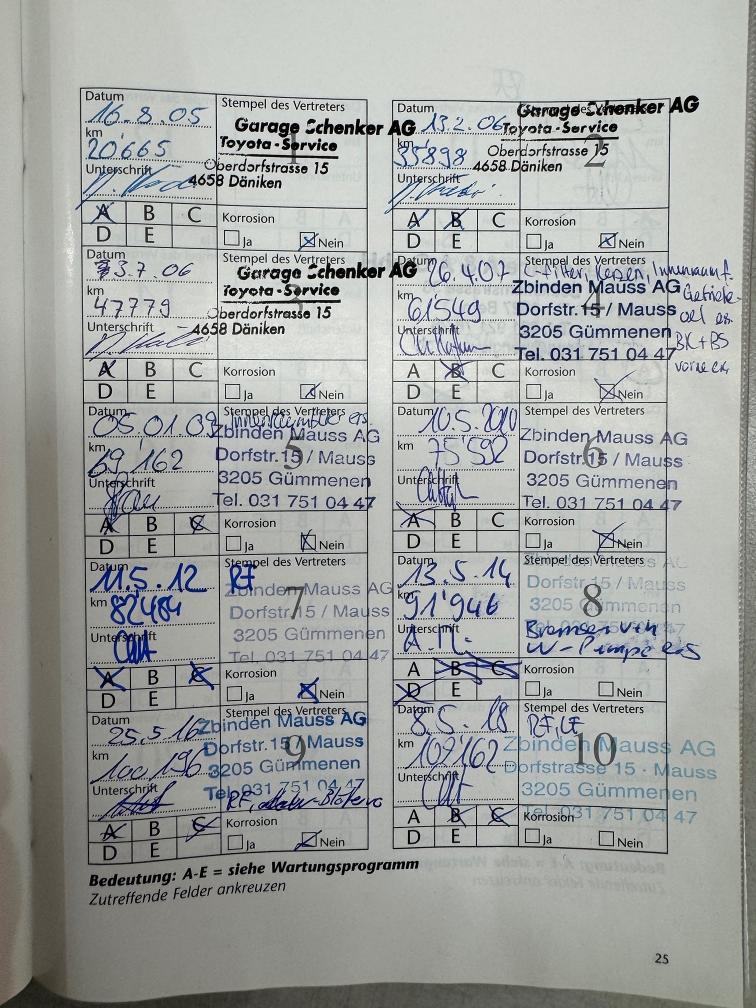 Datum
16.8.05
km
20'665
Unterschrift
Stempel des Vertreters
Garage Schenker AG
Toyota-Service
Oberdorfstrasse 15
4658 Däniken
1
A B C
D E
Korrosion
Ja Nein
Datum
13.2.06
km
33898
Unterschrift
Garage Schenker AG
Toyota-Service
Oberdorfstrasse 15
4658 Däniken
2
A B C
D E
Korrosion
Ja Nein
Datum
3.7.06
km
47779
Unterschrift
Stempel des Vertreters
Garage Schenker AG
Toyota-Service
Oberdorfstrasse 15
4658 Däniken
3
A B C
D E
Korrosion
Ja Nein
26.4.07
km
61549
Unterschrift
Zbinden Mauss AG
Dorfstr.15 / Mauss
3205 Gümmenen
Tel. 031 751 04 47
4
BK+BS
A B C
D E
Korrosion
Ja Nein
Datum
05.01.09
km
69'162
Unterschrift
Stempel des Vertreters
Zbinden Mauss AG
Dorfstr.15 / Mauss
3205 Gümmenen
Tel. 031 751 04 47
5
A B C
D E
Korrosion
Ja Nein
Datum
10.5.2010
km
75'592
Unterschrift
Stempel des Vertreters
Zbinden Mauss AG
Dorfstr.15 / Mauss
3205 Gümmenen
Tel. 031 751 04 47
6
A B C
D E
Korrosion
Ja Nein
Datum
11.5.12
km
82484
Unterschrift
Stempel des Vertreters
RF
Zbinden Mauss AG
Dorfstr.15 / Mauss
3205 Gümmenen
Tel. 031 751 04 47
7
A B C
D E
Korrosion
Ja Nein
Datum
13.5.14
km
91'946
Unterschrift
Stempel des Vertreters
Zbinden Mauss AG
Dorfstr.15 / Mauss
3205 Gümmenen
8
A B C
D E
Korrosion
Ja Nein
Datum
25.5.16
km
100'196
Unterschrift
Stempel des Vertreters
Zbinden Mauss AG
Dorfstr.15 / Mauss
3205 Gümmenen
Tel. 031 751 04 47
9
A B C
D E
Korrosion
Ja Nein
Datum
8.5.18
km
109'162
Unterschrift
Stempel des Vertreters
RF, LF
Zbinden Mauss AG
Dorfstrasse 15 · Mauss
3205 Gümmenen
Tel. 031 751 04 47
10
A B C
D E
Korrosion
Ja Nein
Bedeutung: A-E = siehe Wartungsprogramm
Zutreffende Felder ankreuzen
25